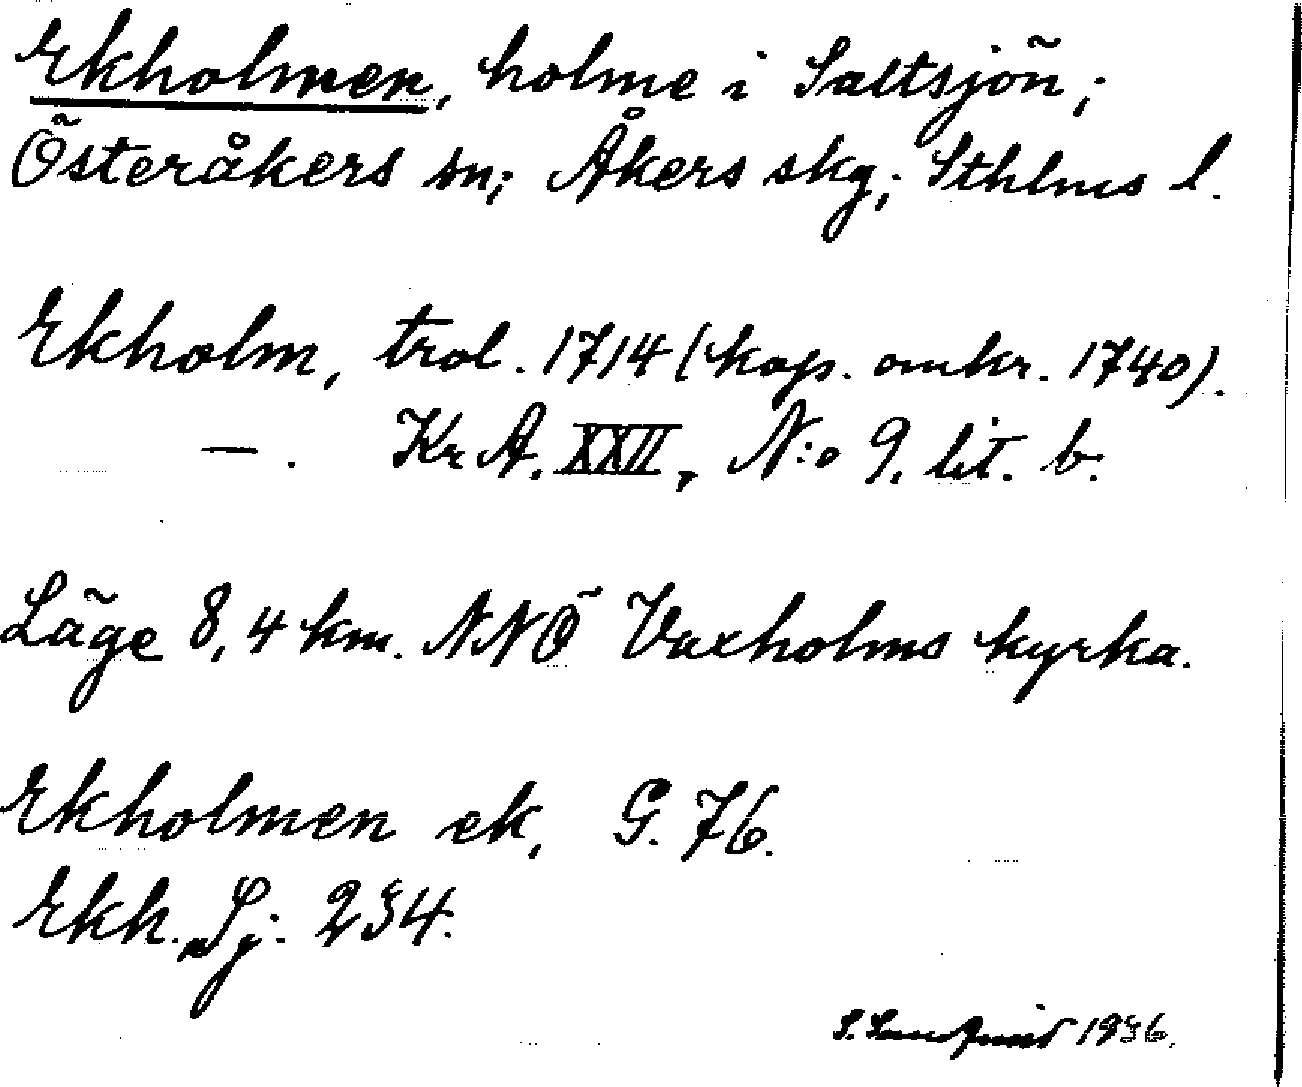 Ekholmen, holme i Saltsjön;
Österåkers sn; Åkers skg; Sthlms l.
Ekholm, trol. 1714 (kop. omkr. 1740).
— . Kr A. XXII, N:o 9. lit. b.
Läge 8,4 km. NNÖ Vaxholms kyrka.
Ekholmen ek, G. 76.
Ekh. Sj. 234.
S. Sandquist 1936.